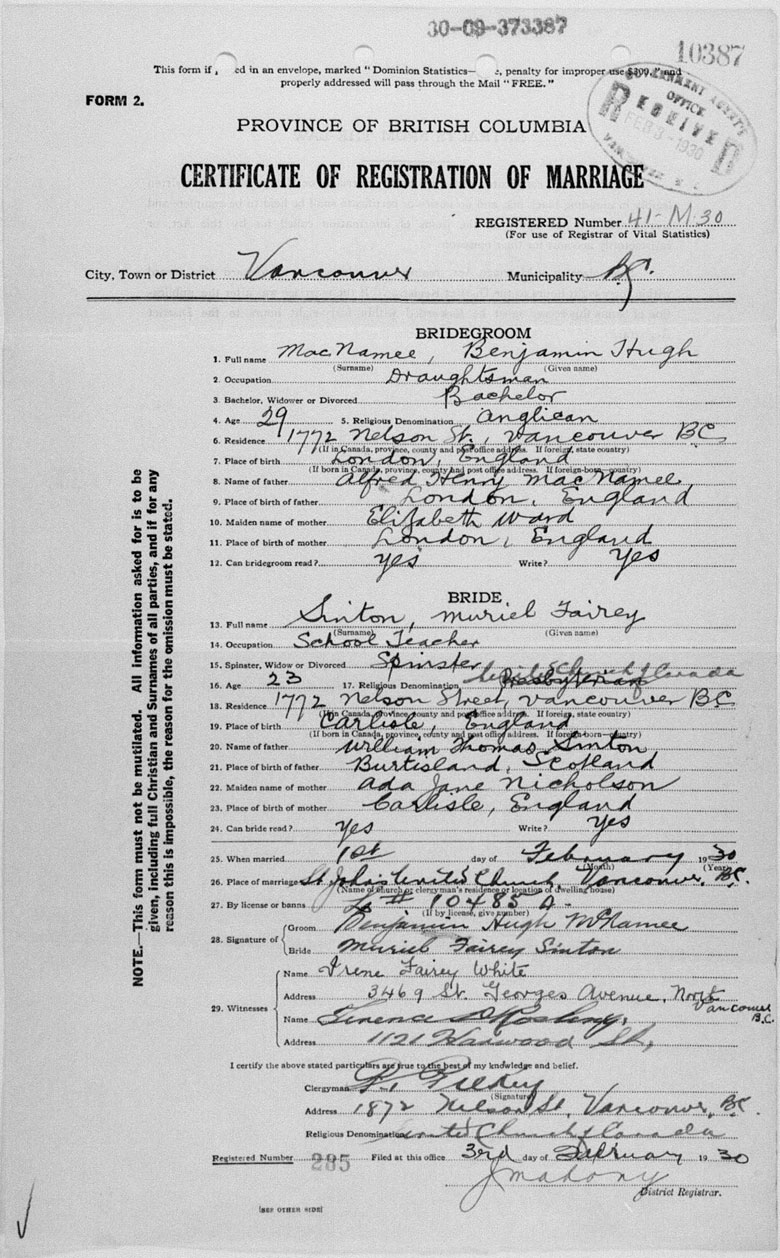 30-09-373387
10387
This form if ed in an envelope, marked "Dominion Statistics— e, penalty for improper use $300," and
properly addressed will pass through the Mail "FREE."
FORM 2.
GOVERNMENT AGENT'S
OFFICE
RECEIVED
FEB 3 - 1930
PROVINCE OF BRITISH COLUMBIA
CERTIFICATE OF REGISTRATION OF MARRIAGE
REGISTERED Number 41-M-30
(For use of Registrar of Vital Statistics)
City, Town or District Vancouver Municipality B.C.
BRIDEGROOM
1. Full name MacNamee, Benjamin Hugh
(Surname) (Given name)
2. Occupation Draughtsman
3. Bachelor, Widower or Divorced Bachelor
4. Age 29 5. Religious Denomination Anglican
6. Residence 1772 Nelson St., Vancouver BC
(If in Canada, province, county and post office address. If foreign, state country)
7. Place of birth London, England
(If born in Canada, province, county and post office address. If foreign-born, country)
8. Name of father Alfred Henry MacNamee,
9. Place of birth of father London, England
10. Maiden name of mother Elizabeth Ward
11. Place of birth of mother London, England
12. Can bridegroom read? yes Write? Yes
BRIDE
13. Full name Sinton, Muriel Fairey
(Surname) (Given name)
14. Occupation School Teacher
15. Spinster, Widow or Divorced Spinster
16. Age 23 17. Religious Denomination Presbyterian United Church of Canada
18. Residence 1772 Nelson Street, Vancouver BC
(If in Canada, province, county and post office address. If foreign, state country)
19. Place of birth Carlisle, England
(If born in Canada, province, county and post office address. If foreign-born, country)
20. Name of father William Thomas Sinton,
21. Place of birth of father Burtisland, Scotland
22. Maiden name of mother Ada Jane Nicholson
23. Place of birth of mother Carlisle, England
24. Can bride read? yes Write? yes
25. When married 1st day of February 1930
(Month) (Year)
26. Place of marriage St. John's United Church, Vancouver, B.C.
(Name of church or clergyman's residence or location of dwelling house)
27. By license or banns L # 10485 A.
(If by license, give number)
28. Signature of Groom Benjamin Hugh McNamee
Bride Muriel Fairey Sinton
29. Witnesses Name Irene Fairey White
Address 3469 St. Georges Avenue, North Vancouver B.C.
Name
Address 1121 Harwood St,
I certify the above stated particulars are true to the best of my knowledge and belief.
Clergyman
(Signature)
Address 1872 Nelson St, Vancouver, B.C.
Religious Denomination United Church of Canada
Registered Number 285 Filed at this office 3rd day of February 1930
J Mahony
District Registrar.
[SEE OTHER SIDE]
NOTE.—This form must not be mutilated. All information asked for is to be
given, including full Christian and Surnames of all parties, and if for any
reason this is impossible, the reason for the omission must be stated.